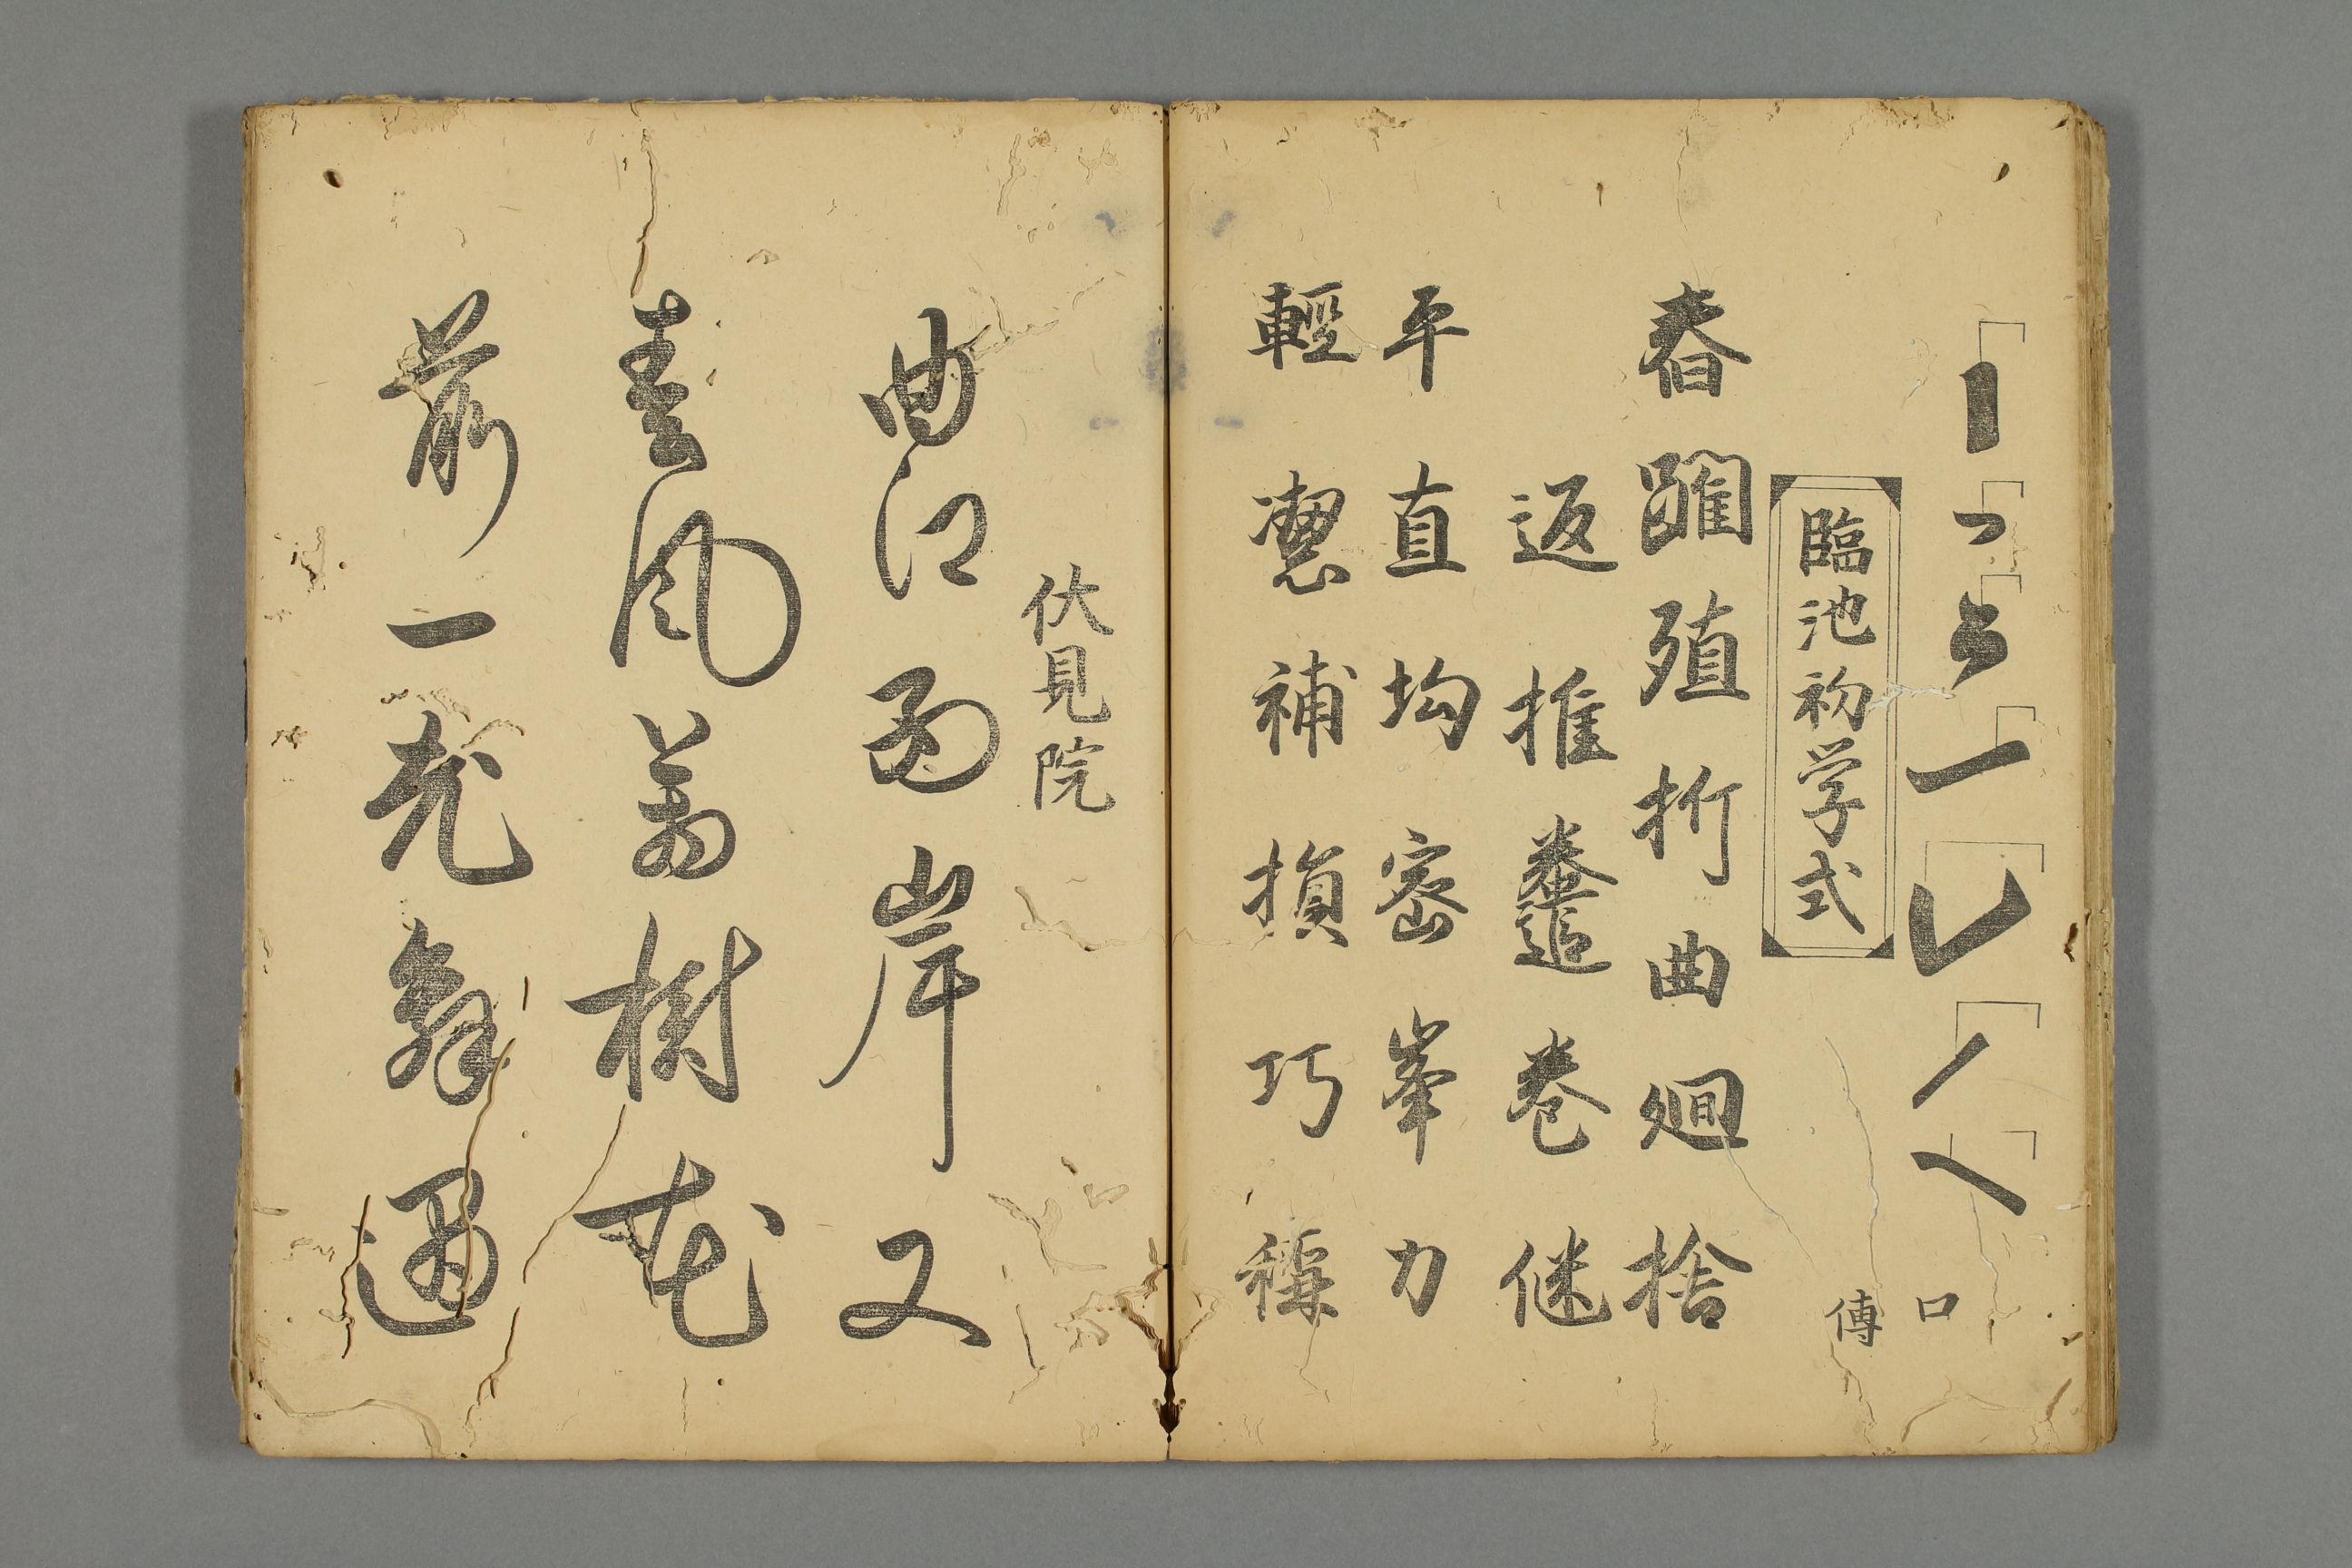 口
傳
臨池初学式
春殖折曲廻捨
返推巻
平直均密峯力
輕補損巧稱
伏見院
曲江西岸又
春風萬樹花
前一老翁遇